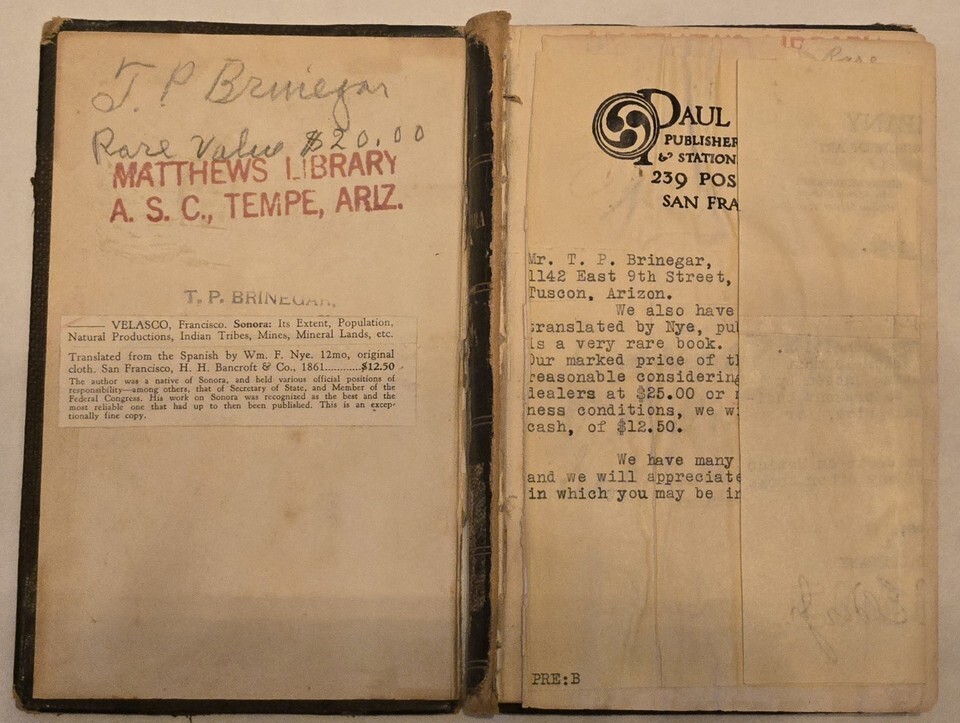 T. P. Brinegar
Rare Value $20.00
MATTHEWS LIBRARY
A. S. C., TEMPE, ARIZ.
T. P. BRINEGAR,
—— VELASCO, Francisco. Sonora: Its Extent, Population,
Natural Productions, Indian Tribes, Mines, Mineral Lands, etc.
Translated from the Spanish by Wm. F. Nye. 12mo, original
cloth. San Francisco, H. H. Bancroft & Co., 1861..........$12.50
The author was a native of Sonora, and held various official positions of
responsibility—among others, that of Secretary of State, and Member of the
Federal Congress. His work on Sonora was recognized as the best and the
most reliable one that had up to then been published. This is an excep-
tionally fine copy.
Rare
PAUL
PUBLISHER
& STATION
239 POS
SAN FRA
Mr. T. P. Brinegar,
1142 East 9th Street,
Tuscon, Arizon.
We also have
translated by Nye, pu
is a very rare book.
Our marked price of t
reasonable considering
dealers at $25.00 or
ness conditions, we w
cash, of $12.50.
We have many
and we will appreciate
in which you may be in
PRE:B